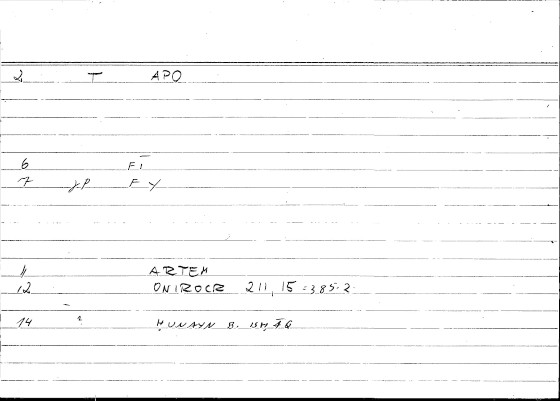 2 T APO
6 FĪ
7 γP F Y
11 ARTEM
12 ONIROCR 211, 15 = 385.2
14 ḤUNAYN B. ISḤĀQ